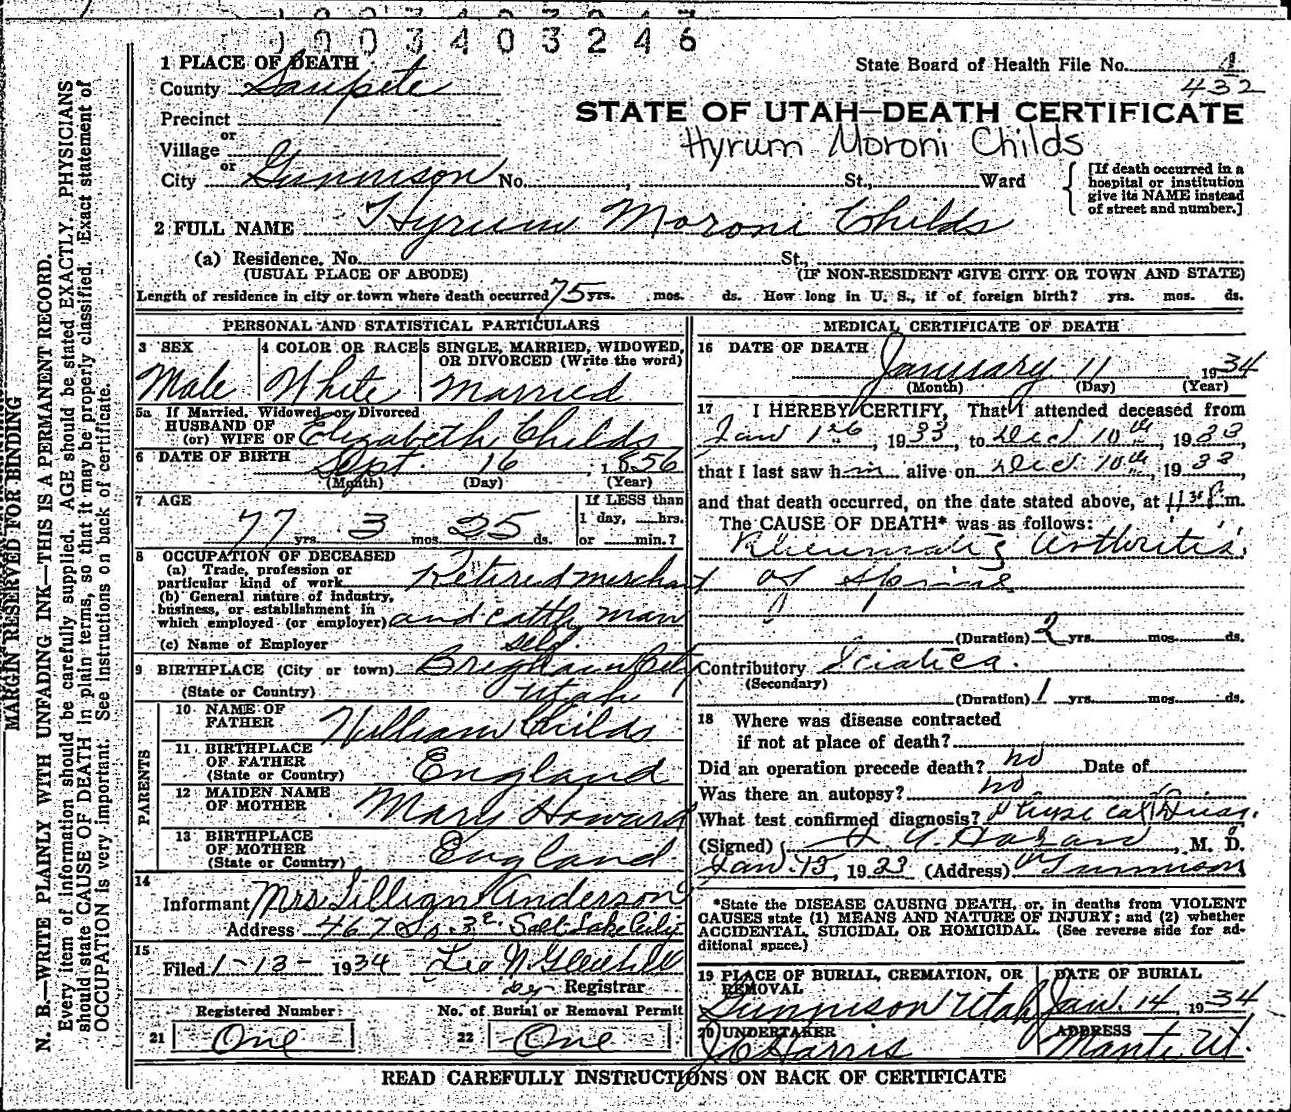 1 0 0 3 4 0 3 2 4 6
1 PLACE OF DEATH
State Board of Health File No. 1
County Sanpete
432
STATE OF UTAH—DEATH CERTIFICATE
Precinct
or
Hyrum Moroni Childs
Village
or
City Gunnison No. , St., Ward
[If death occurred in a
hospital or institution
give its NAME instead
of street and number.]
2 FULL NAME Hyrum Moroni Childs
(a) Residence. No. St.,
(USUAL PLACE OF ABODE) (IF NON-RESIDENT GIVE CITY OR TOWN AND STATE)
Length of residence in city or town where death occurred 75 yrs. mos. ds. How long in U. S., if of foreign birth? yrs. mos. ds.
PERSONAL AND STATISTICAL PARTICULARS
3 SEX
Male
4 COLOR OR RACE
White
5 SINGLE, MARRIED, WIDOWED,
OR DIVORCED (Write the word)
Married
5a If Married, Widowed, or Divorced
HUSBAND OF
(or) WIFE OF Elizabeth Childs
6 DATE OF BIRTH Sept. 16, 1856
(Month) (Day) (Year)
7 AGE
77 yrs. 3 mos. 25 ds.
If LESS than
1 day, hrs.
or min.?
8 OCCUPATION OF DECEASED
(a) Trade, profession or
particular kind of work Retired merchant
(b) General nature of industry,
business, or establishment in
which employed (or employer) and cattle man
(c) Name of Employer self
9 BIRTHPLACE (City or town) City
(State or Country) Utah
PARENTS
10 NAME OF
FATHER William Childs
11 BIRTHPLACE
OF FATHER
(State or Country) England
12 MAIDEN NAME
OF MOTHER Mary Howard
13 BIRTHPLACE
OF MOTHER
(State or Country) England
14
Informant Mrs Lillian Anderson
Address 467 So. 3 E. Salt Lake City
15
Filed 1-13- 1934
Registrar
Registered Number
21 One
No. of Burial or Removal Permit
22 One
MEDICAL CERTIFICATE OF DEATH
16 DATE OF DEATH January 11 1934
(Month) (Day) (Year)
17 I HEREBY CERTIFY, That I attended deceased from
Jan 1st, 1933, to Dec 10th, 1933,
that I last saw him alive on Dec 10th, 1933,
and that death occurred, on the date stated above, at 11 m.
The CAUSE OF DEATH* was as follows:
Arthritis
of Spine
(Duration) 2 yrs. mos. ds.
Contributory Sciatica.
(Secondary)
(Duration) 1 yrs. mos. ds.
18 Where was disease contracted
if not at place of death?
Did an operation precede death? no Date of
Was there an autopsy? no
What test confirmed diagnosis?
(Signed) , M. D.
Jan. 13, 1933 (Address) Gunnison
*State the DISEASE CAUSING DEATH, or, in deaths from VIOLENT
CAUSES state (1) MEANS AND NATURE OF INJURY; and (2) whether
ACCIDENTAL, SUICIDAL OR HOMICIDAL. (See reverse side for ad-
ditional space.)
19 PLACE OF BURIAL, CREMATION, OR
REMOVAL
Gunnison Utah
DATE OF BURIAL
Jan. 14, 1934
20 UNDERTAKER
Harris
ADDRESS
Manti, Ut.
READ CAREFULLY INSTRUCTIONS ON BACK OF CERTIFICATE
MARGIN RESERVED FOR BINDING
N. B.—WRITE PLAINLY WITH UNFADING INK—THIS IS A PERMANENT RECORD.
Every item of information should be carefully supplied. AGE should be stated EXACTLY. PHYSICIANS
should state CAUSE OF DEATH in plain terms, so that it may be properly classified. Exact statement of
OCCUPATION is very important. See Instructions on back of certificate.